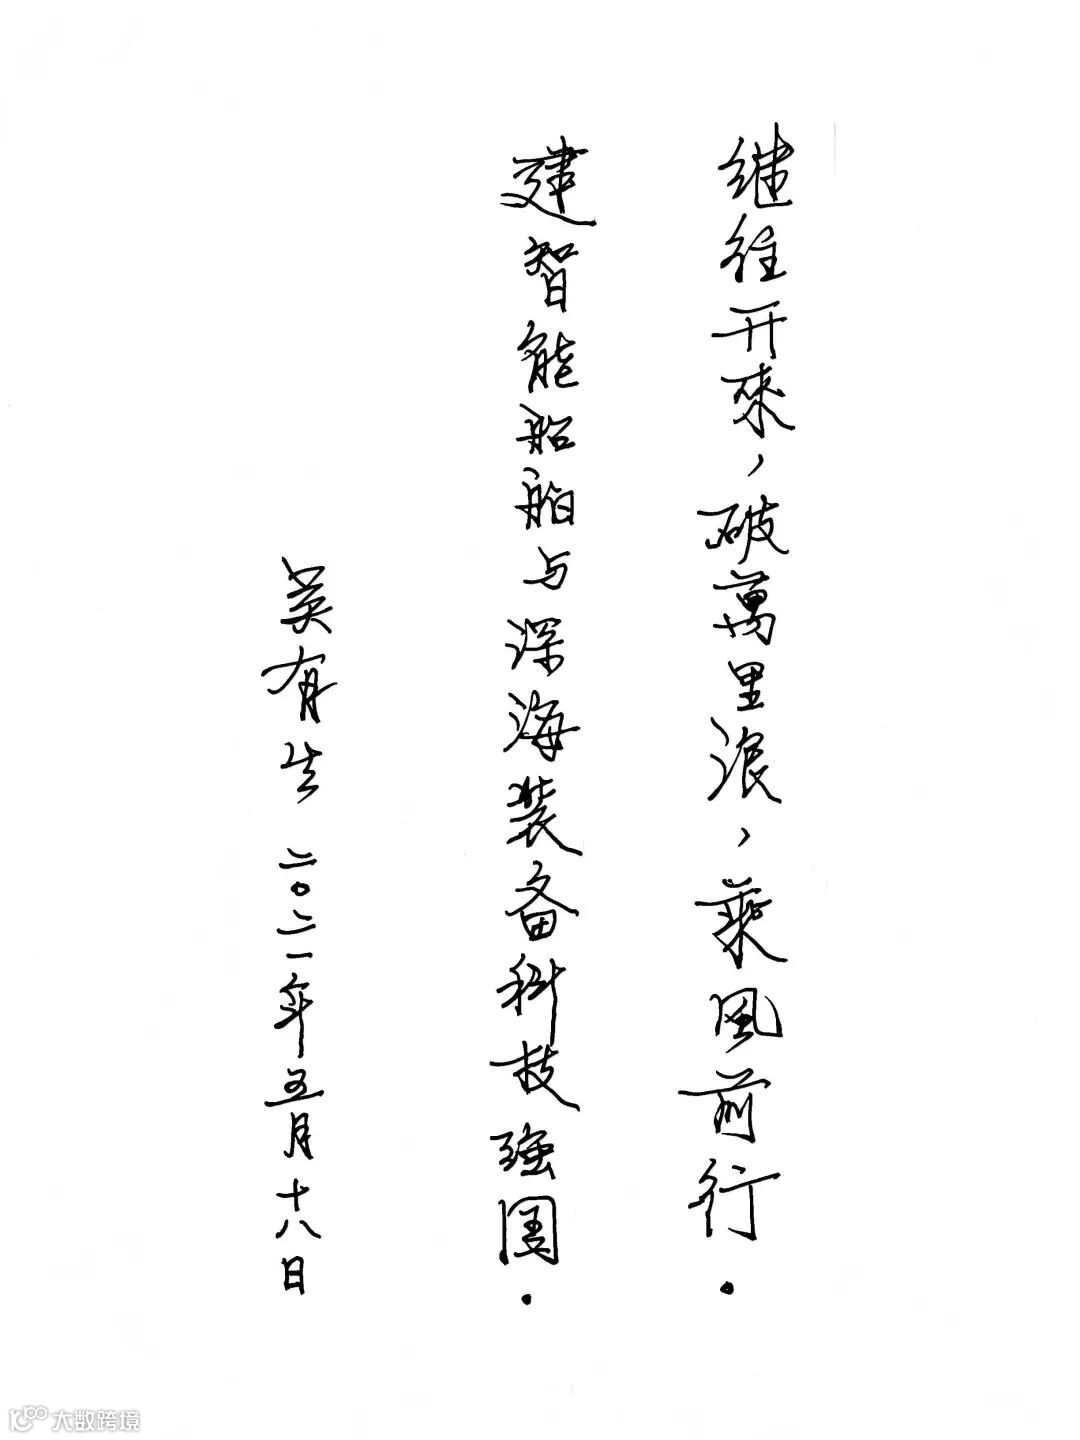 继往开來，破萬里浪，乘風前行．
建智能船舶与深海装备科技强国．
吴有生 二〇二一年五月十八日
大数跨境